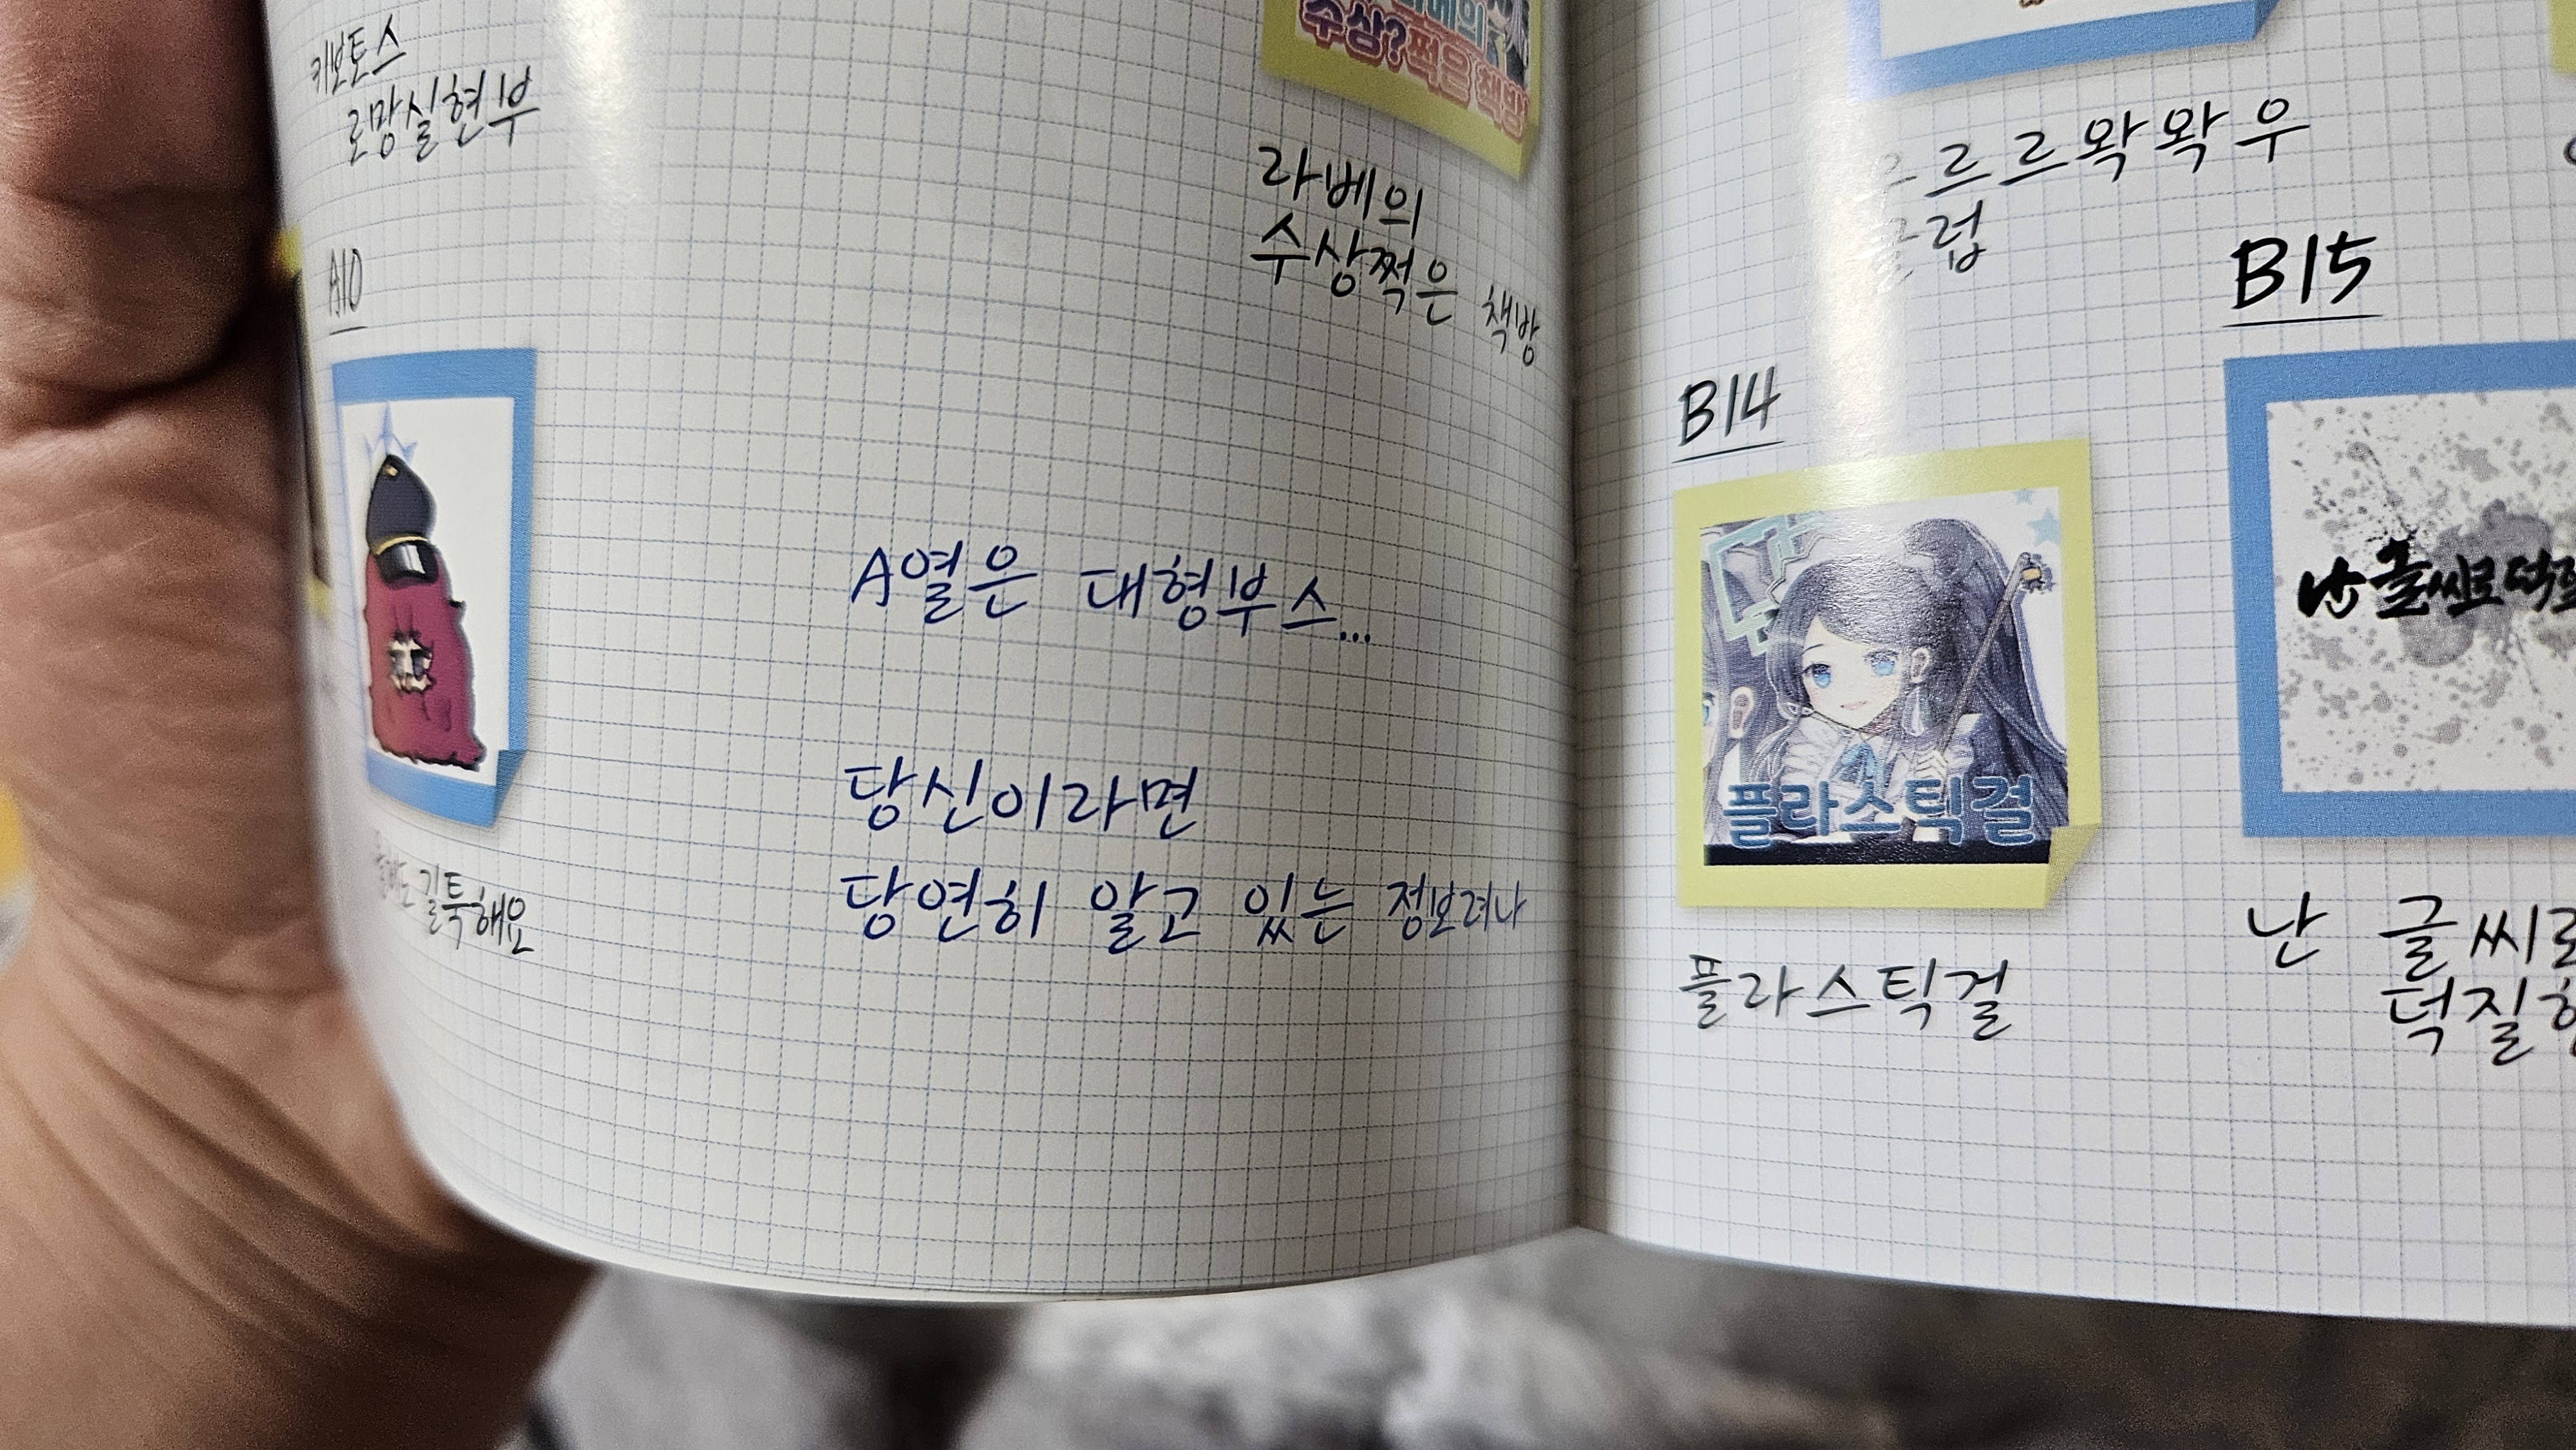 키보토스
로망실현부
A10
길툭해요
수상?쩍은 책방
라베의
수상쩍은 책방
A열은 대형부스...
당신이라면
당연히 알고 있는 정보려나
르르왁왁우
클럽
B14
플라스틱걸
플라스틱걸
B15
난 글씨로
난 글씨로
덕질